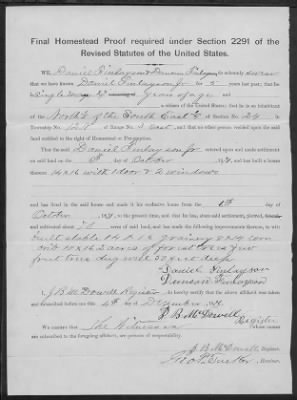 Final Homestead Proof required under Section 2291 of the
Revised Statutes of the United States.
WE, Daniel Finlayson & Duncan Finlayson do solemnly swear
that we have known Daniel Finlayson for 5 years last past; that he
is Single years of age
a citizen of the United States; that he is an inhabitant
of the North ½ of the South East ¼ of Section No. 24 in
Township No. of Range No. East, and that no other person resided upon the said
land entitled to the right of Homestead or Pre-emption.
That the said Daniel Finlayson entered upon and made settlement
on said land on the 6th day of October, 18 and has built a house thereon
14 x 16 with 1 door & 2 windows
and has lived in the said house and made it his exclusive home from the 6th day of
October, 18 to the present time, and that he has, since said settlement, plowed,
and cultivated about acres of said land, and has made the following improvements thereon, to wit:
built stable 14 x 16 granary
10 x 16 2 acres of forest trees few
fruit trees dug well feet deep
Daniel Finlayson
Duncan Finlayson
I, J B McDowell Register do hereby certify that the above affidavit was
subscribed before me this 4th day of December, 18
J. B. McDowell
Register
WE CERTIFY that the Witnesses whose names
are subscribed to the foregoing affidavit, are persons of respectability.
J. B. McDowell, Register.
Receiver.